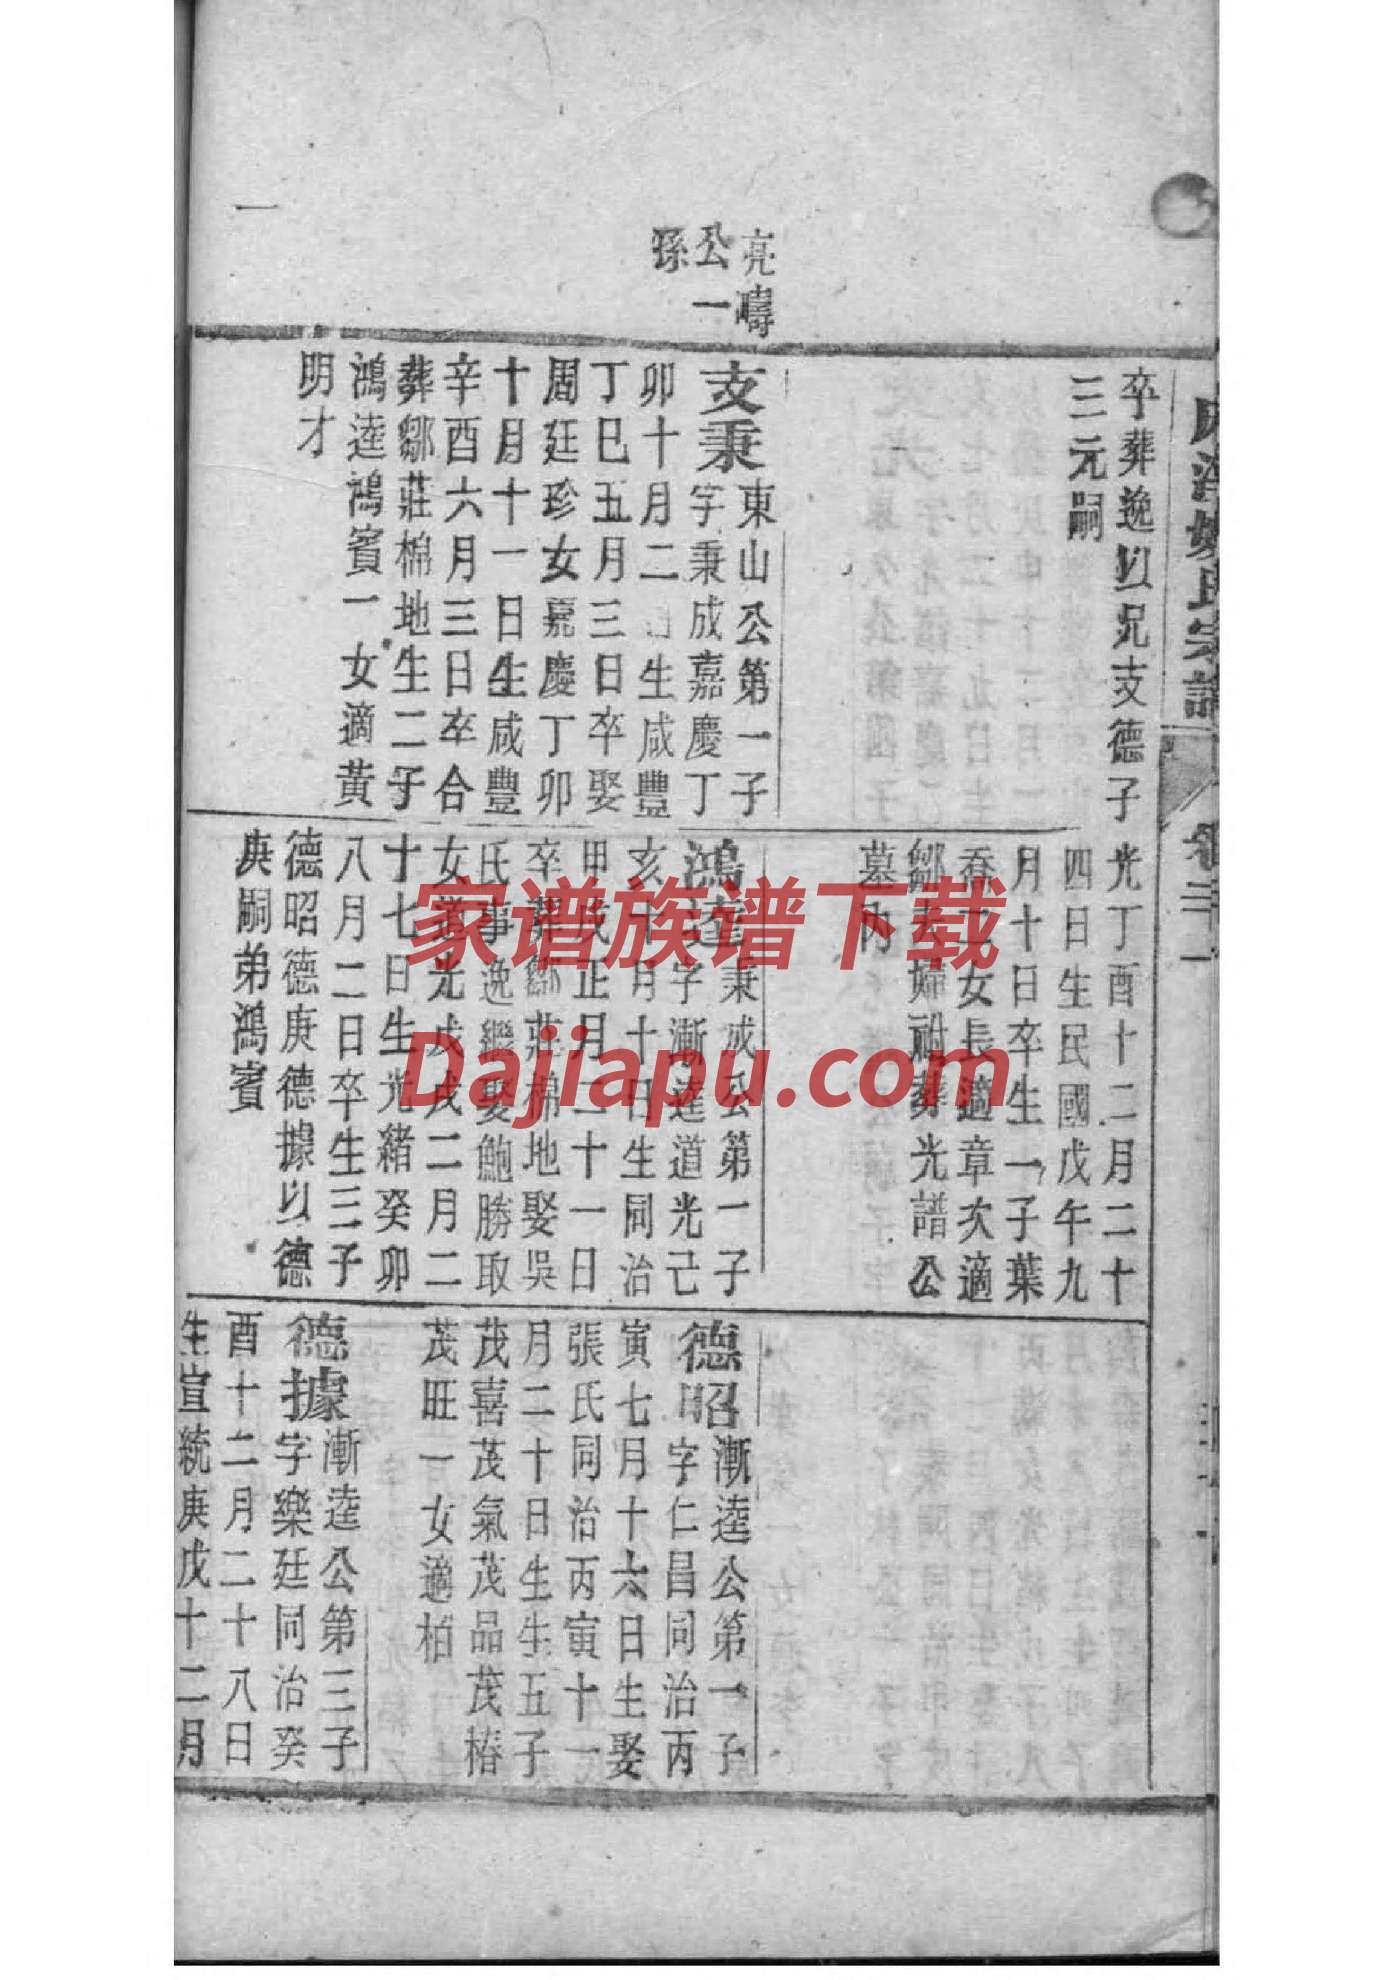 亮疇
公一
孫
卒葬逸以兄支德子
三元嗣
支秉
東山公第一子
字秉成嘉慶丁
卯十月二日生咸豐
丁巳五月三日卒娶
周廷珍女嘉慶丁卯
十月十一日生咸豐
辛酉六月三日卒合
葬鄒莊棉地生二子
鴻逵鴻賓一女適黃
明才
光丁酉十二月二十
四日生民國戊午九
月十日卒生一子葉
喬七女長適章次適
鄒夫婦祔葬光譜公
墓內
鴻逵
秉成公第一子
字漸逵道光己
亥十月十日生同治
甲戌正月二十一日
卒葬鄒莊棉地娶吳
氏事逸繼娶鮑勝取
女道光戊戌二月二
十七日生光緒癸卯
八月二日卒生三子
德昭德庚德據以德
庚嗣弟鴻賓
德昭
漸逵公第一子
字仁昌同治丙
寅七月十六日生娶
張氏同治丙寅十一
月二十日生生五子
茂喜茂氣茂品茂椿
茂旺一女適柏
德據
漸逵公第三子
字樂廷同治癸
酉十二月二十八日
生宣統庚戌十二月
一
家谱族谱下载
Dajiapu.com